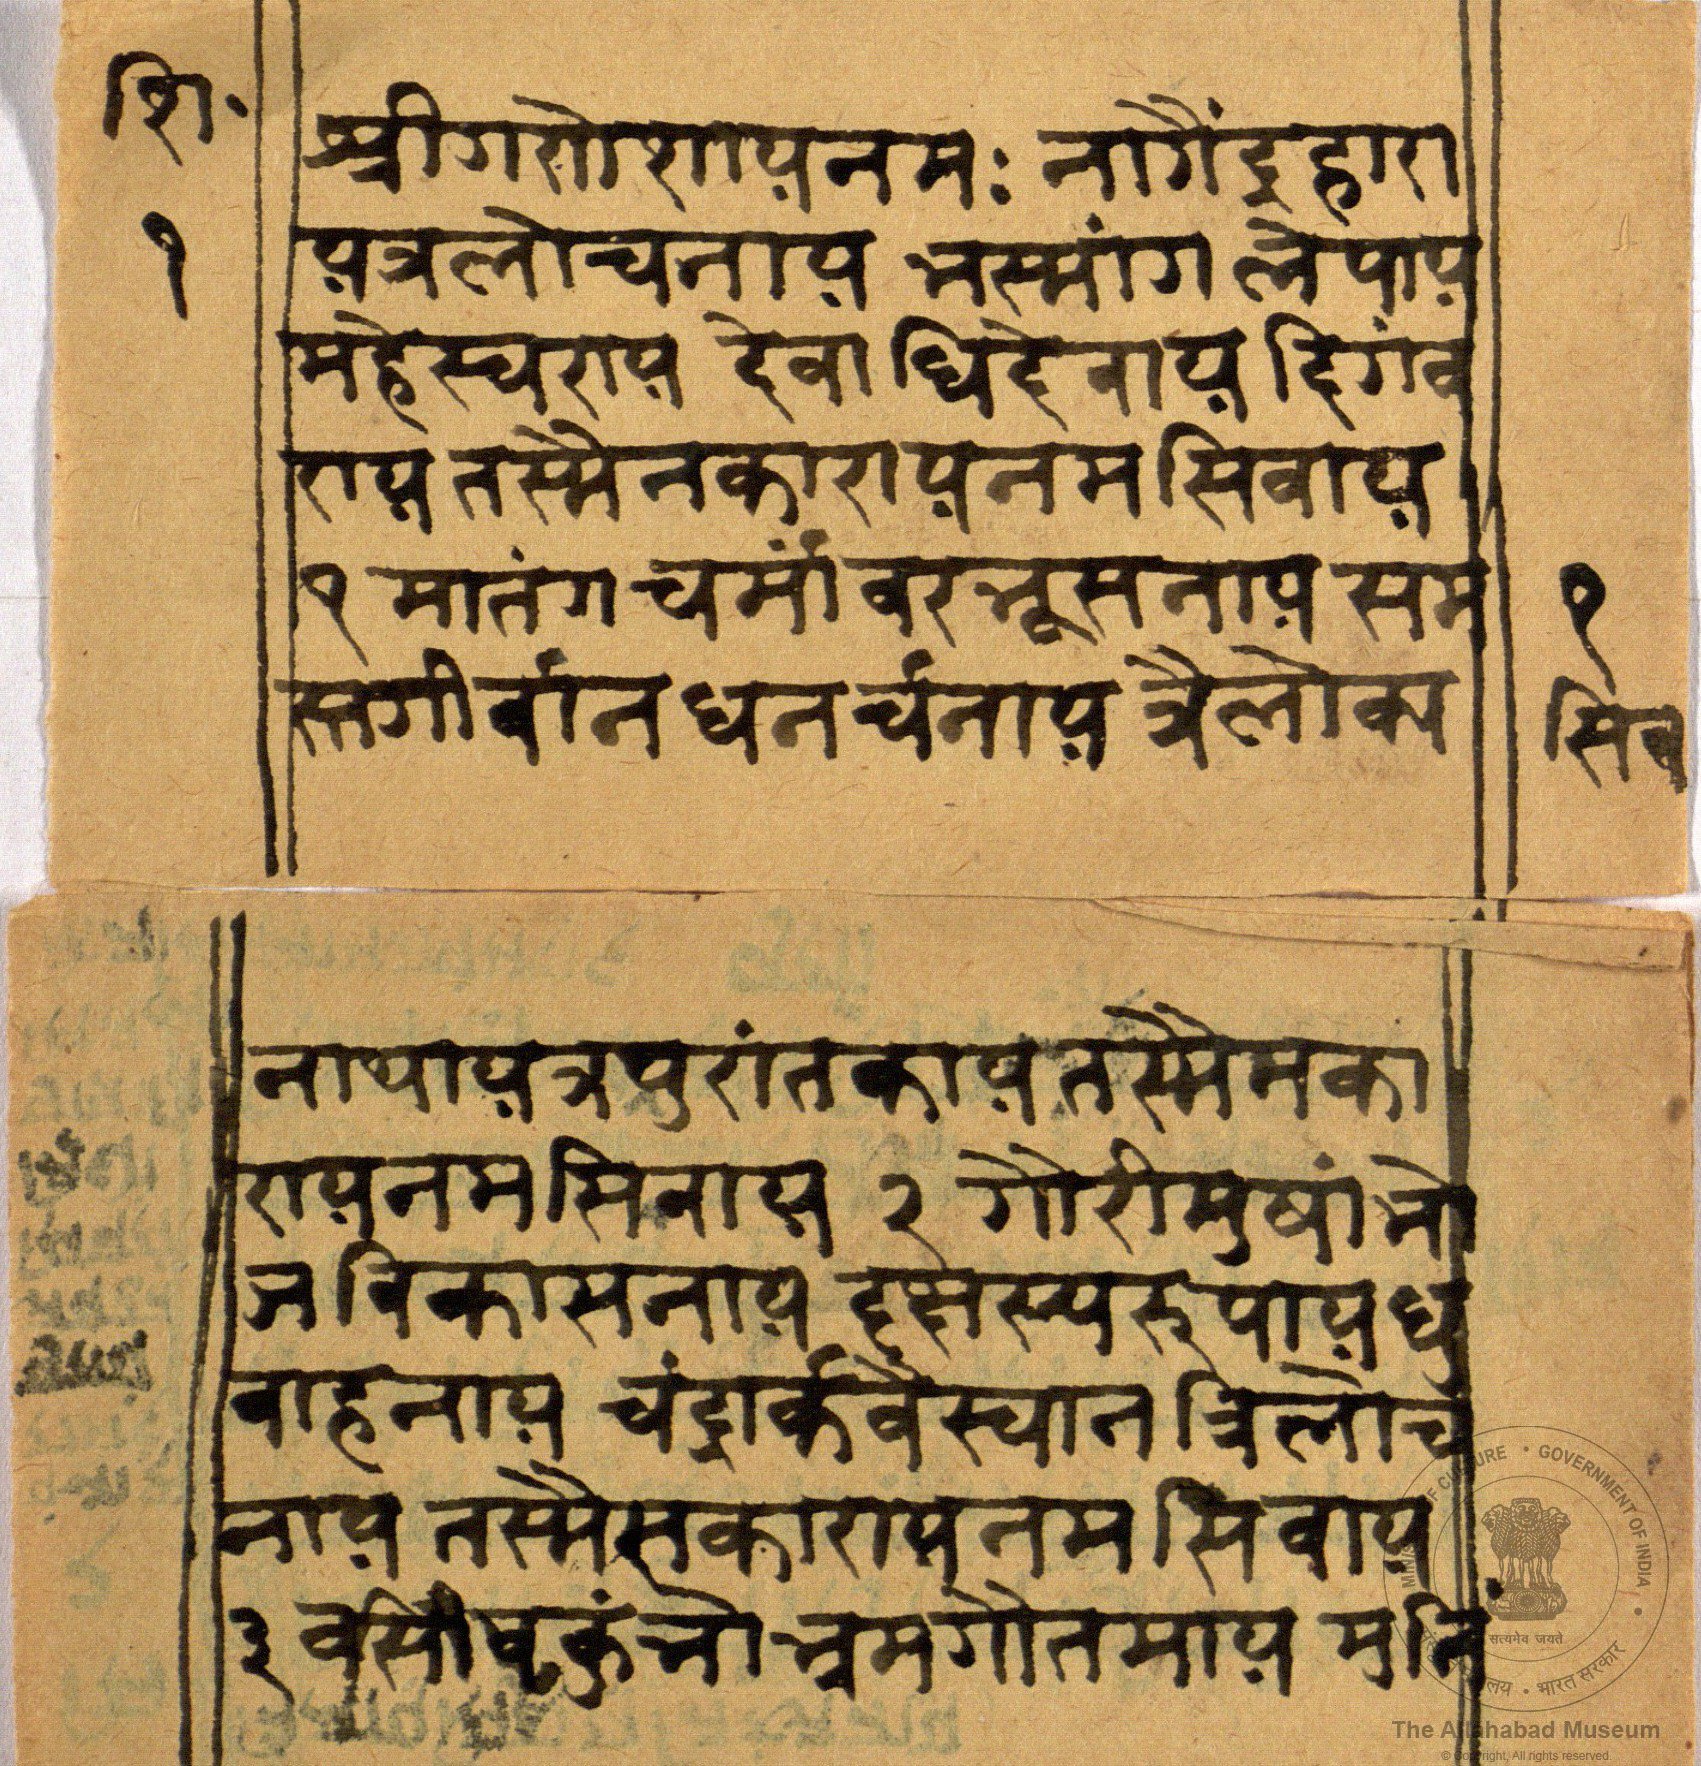 शि.
श्रीगणेशायनमः नागेंद्रहारा
१
यत्रलोचनाय भस्मांग लेपाय
महेस्वराय देवाधिदेवाय दिगंव
राय तस्मैनकारायनमसिवाय
१ मातंग चर्मांवरभूसनाय सम
स्तगीर्वान धनर्चनाय त्रैलोक
१
सिव
नाथायत्रपुरांतकाय तस्मैमका
रायनमसिवाय २ गौरीमुषांभो
जविकासनाय
वाहनाय चंद्रार्कवैस्वान त्रिलोच
नाय तस्मैसकारायनमसिवाय
३
MINISTRY OF CULTURE • GOVERNMENT OF INDIA •
सत्यमेव जयते
भारत सरकार
The Allahabad Museum
© Copyright, All rights reserved.